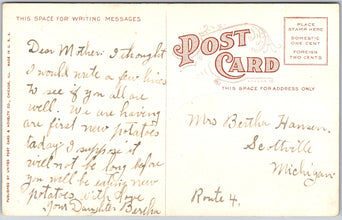 THIS SPACE FOR WRITING MESSAGES
Dear Mother: I thought
I would write a few lines
to see if you all are
well. We are having
are first new potatoes
today I suppose it
will not be long before
you will be eating new
potatoes with
Your Daughter Bertha
PUBLISHED BY UNITED POST CARD & NOVELTY CO., CHICAGO, ILL. MADE IN U.S.A.
POST CARD
THIS SPACE FOR ADDRESS ONLY
PLACE
STAMP HERE
DOMESTIC
ONE CENT
FOREIGN
TWO CENTS
Mrs Bertha Hansen,
Scottville
Michigan
Route 4,